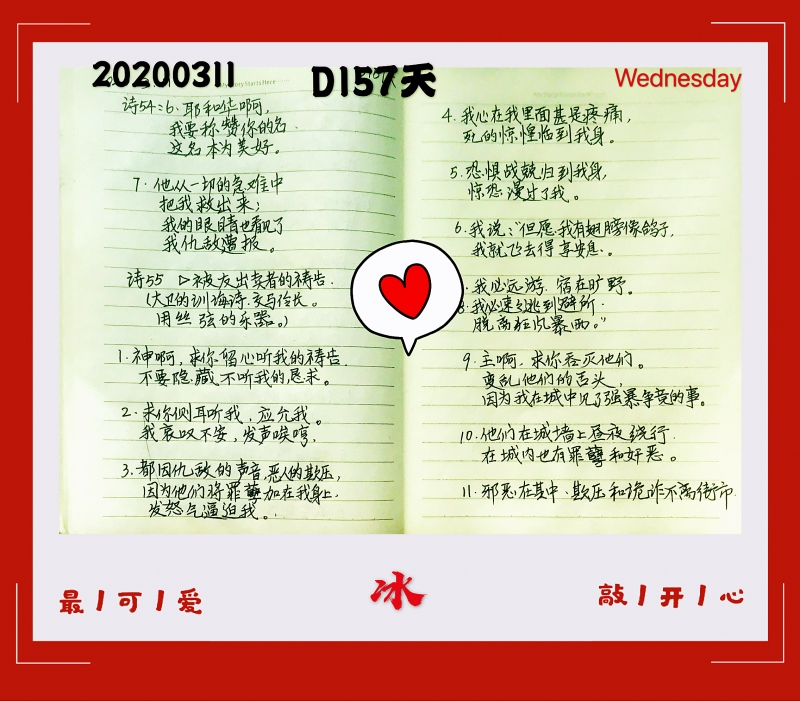 20200311
D157天
Wednesday
诗54:6.耶和华啊,
我要称赞你的名.
这名本为美好。
7.他从一切的急难中
把我救出来;
我的眼睛也看见了
我仇敌遭报。
诗55 ▷被友出卖者的祷告.
(大卫的训诲诗.交与伶长。
用丝弦的乐器。)
1.神啊,求你留心听我的祷告.
不要隐藏不听我的恳求。
2.求你侧耳听我,应允我。
我哀叹不安,发声唉哼,
3.都因仇敌的声音,恶人的欺压,
因为他们将罪孽加在我身上,
发怒气逼迫我。
4.我心在我里面甚是疼痛,
死的惊惶临到我身。
5.恐惧战兢归到我身,
惊恐漫过了我。
6.我说:“但愿我有翅膀像鸽子,
我就飞去得享安息.
我必远游.宿在旷野。
8.我必速々逃到避所.
脱离狂风暴雨。”
9.主啊,求你吞灭他们。
变乱他们的舌头,
因为我在城中见了强暴争竞的事。
10.他们在城墙上昼夜绕行.
在城内也有罪孽和奸恶。
11.邪恶在其中.欺压和诡诈不离街市.
最丨可丨爱
冰
敲丨开丨心